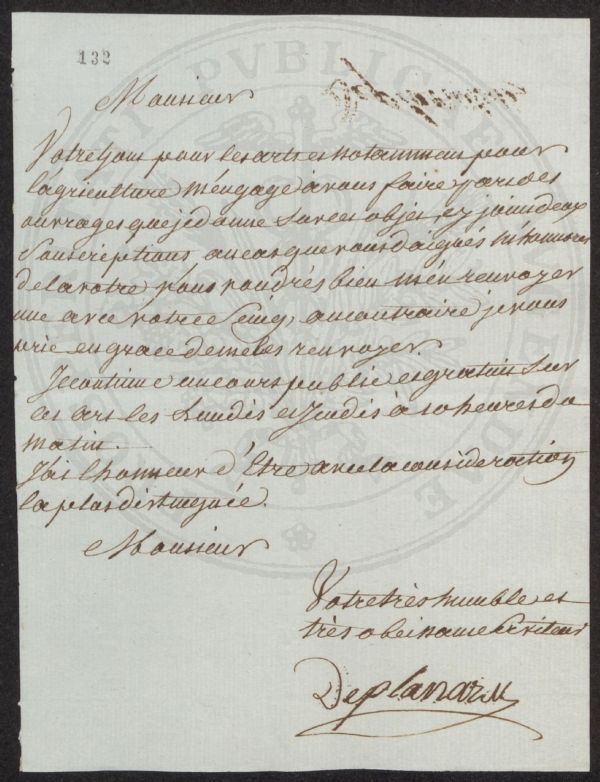 132
Monsieur
Votre gous pour les arts et notamman pour
l'agriculture m'engage a vous faire par des
ouvrages que je donne sur ces objes, cy join deux
Souscriptions, au cas que vous daigniés m'honnorer
de la votre vous voudrés bien m'en renvoyer
une avec votre Seing, au contraire je vous
prie en grace de me les renvoyer.
Je continue un cours public et gratuis sur
ces ars les Lundis et Jeudis à 10 heures du
matin.
J'ais l'honneur d'Etre avec la consideration
la plus distinguée.
Monsieur
Votre très humble et
très obeissant serviteur
Deplanazu